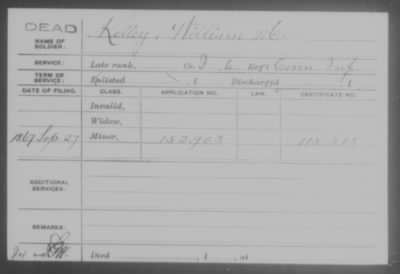 DEAD
NAME OF SOLDIER: Kelley, William W.
SERVICE: Late rank, Co. I, 6 Reg't Conn. Inf
TERM OF SERVICE: Enlisted , 1 Discharged , 1
DATE OF FILING. CLASS. APPLICATION NO. LAW. CERTIFICATE NO.
Invalid,
Widow,
1867 Sep. 27 Minor, 152.903 115.315
ADDITIONAL SERVICES:
REMARKS:
Died , 1 , at